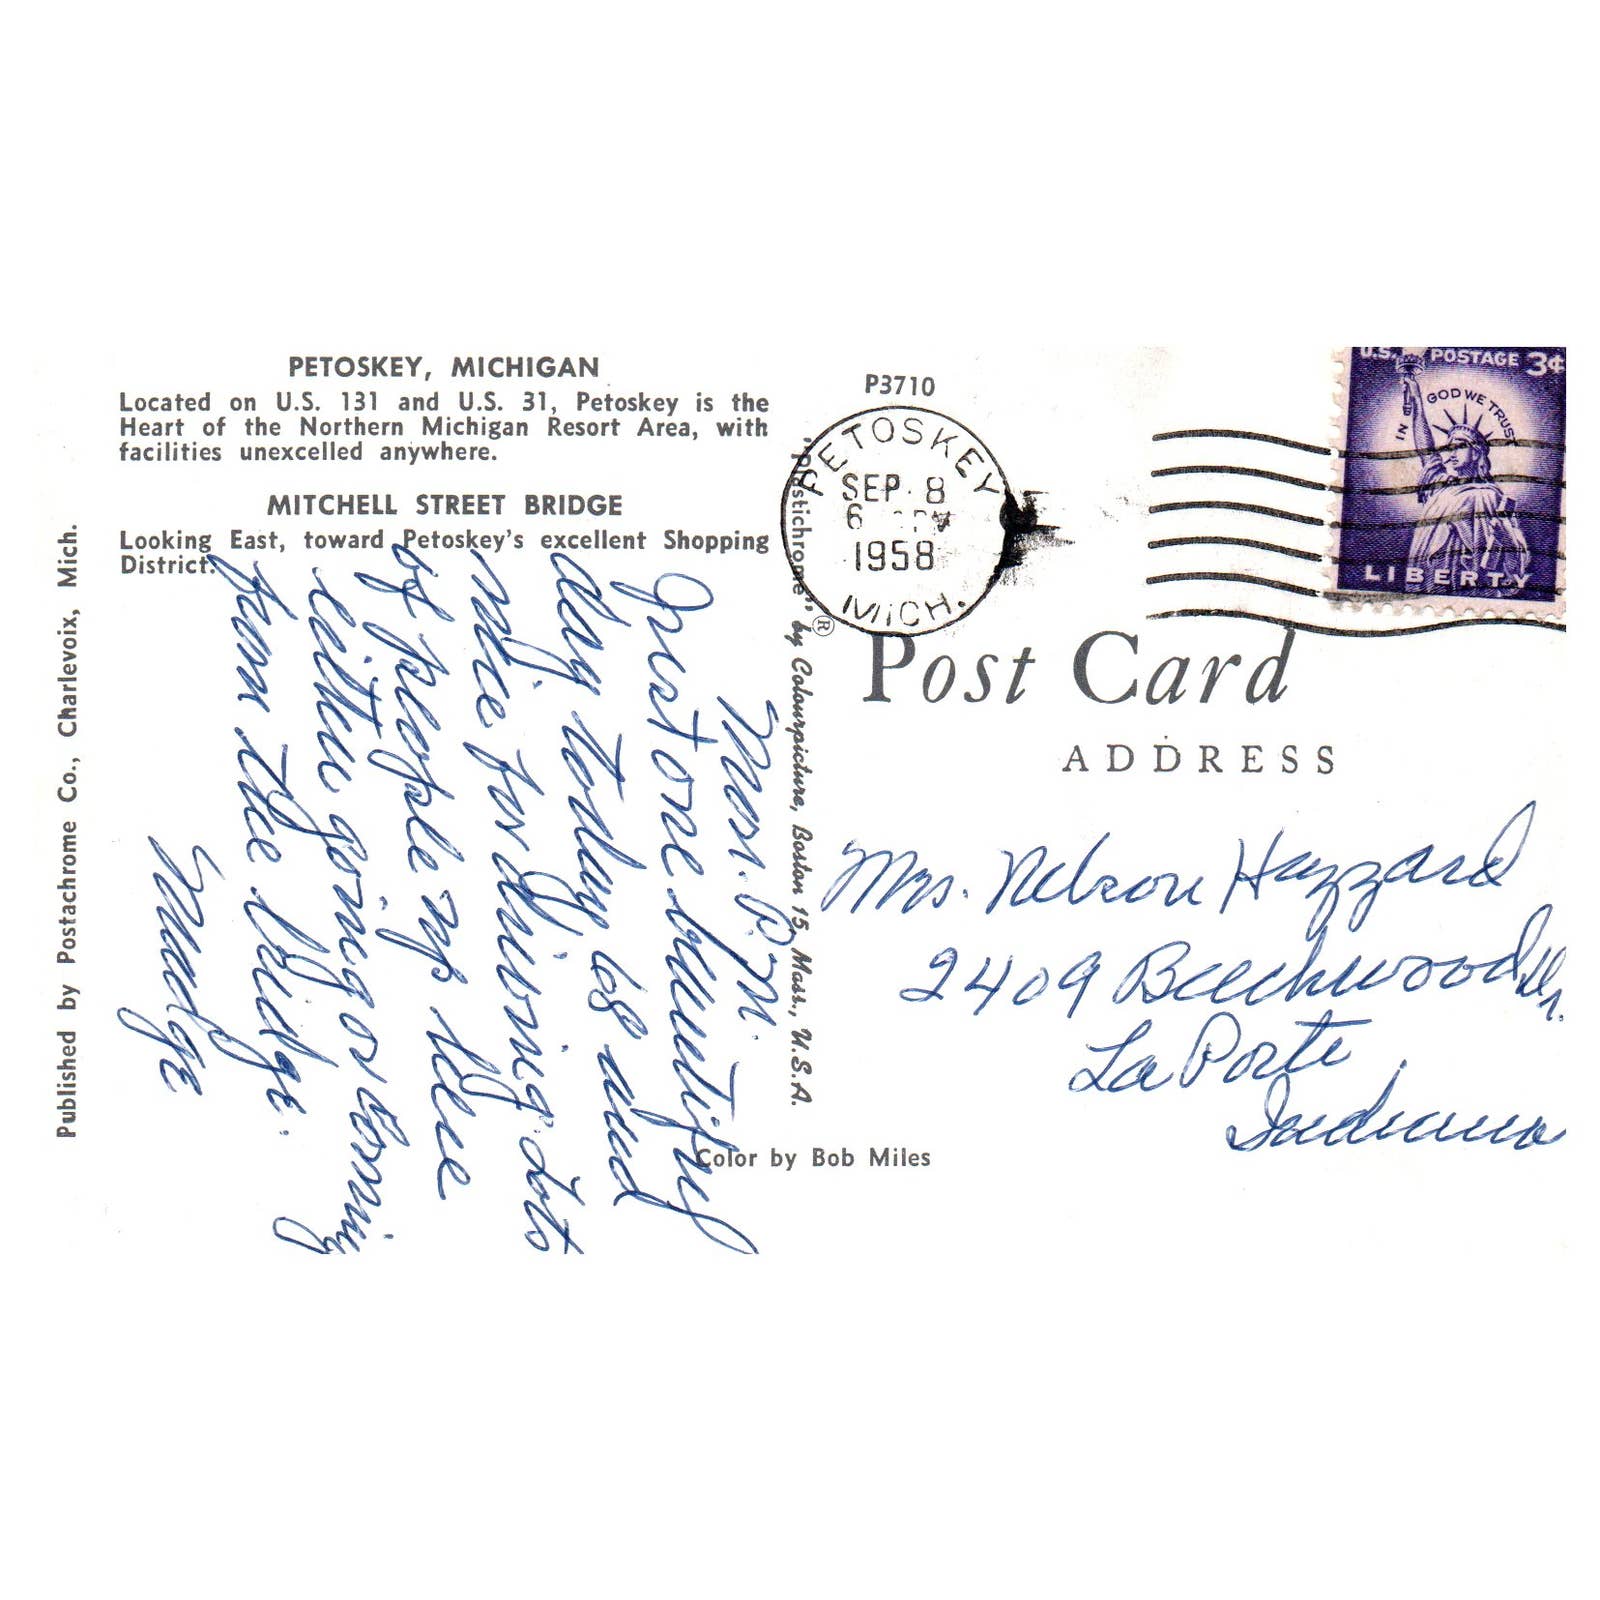 PETOSKEY, MICHIGAN
Located on U.S. 131 and U.S. 31, Petoskey is the
Heart of the Northern Michigan Resort Area, with
facilities unexcelled anywhere.
MITCHELL STREET BRIDGE
Looking East, toward Petoskey's excellent Shopping
District.
Published by Postachrome Co., Charlevoix, Mich.
Mon. P.M.
Just one beautiful
day today 68 and
nice for driving. Lots
of people up here
either going or coming
from the bridge.
Madge
"Plastichrome"® by Colourpicture, Boston 15, Mass., U.S.A.
Color by Bob Miles
P3710
PETOSKEY
SEP 8
6 PM
1958
MICH.
U.S. POSTAGE 3¢
IN GOD WE TRUST
LIBERTY
Post Card
ADDRESS
Mrs. Nelson Hazzard
2409 Beechwood Dr.
La Porte,
Indiana